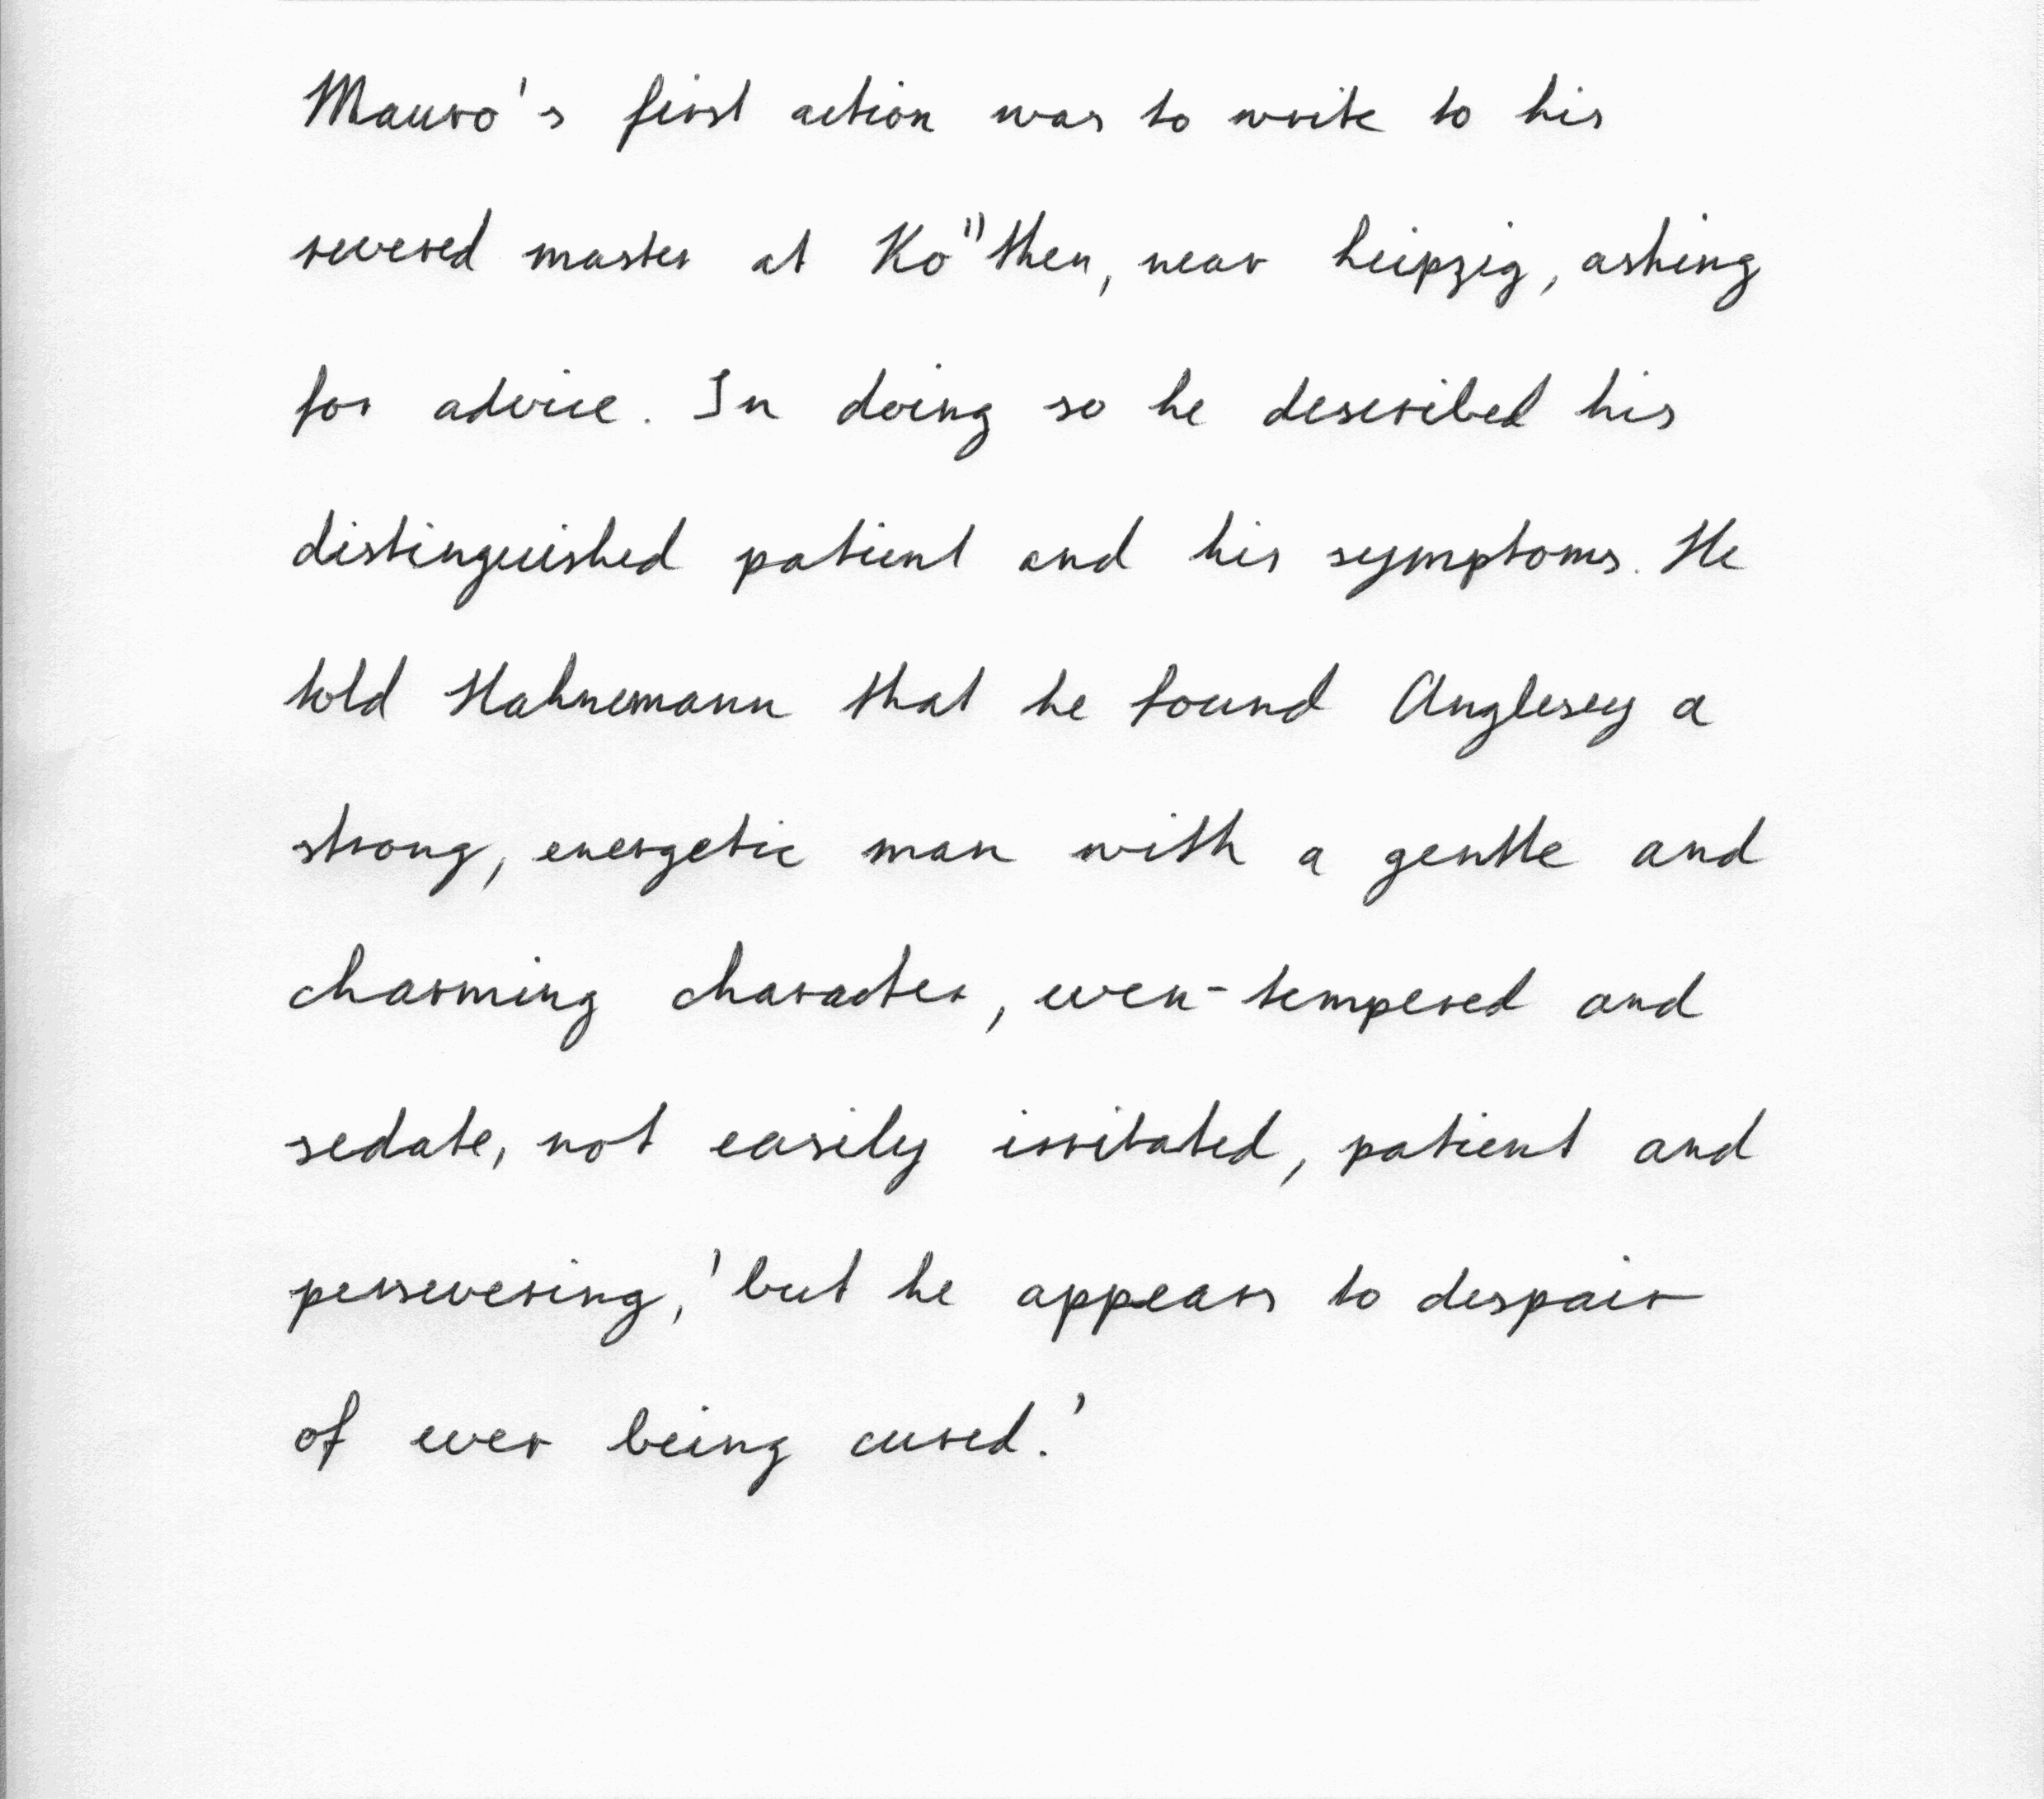 Mauro's first action was to write to his
revered master at Ko"then, near Leipzig, asking
for advice. In doing so he described his
distinguished patient and his symptoms. He
told Hahnemann that he found Anglesey a
strong, energetic man with a gentle and
charming character, even-tempered and
sedate, not easily irritated, patient and
persevering, 'but he appears to despair
of ever being cured.'